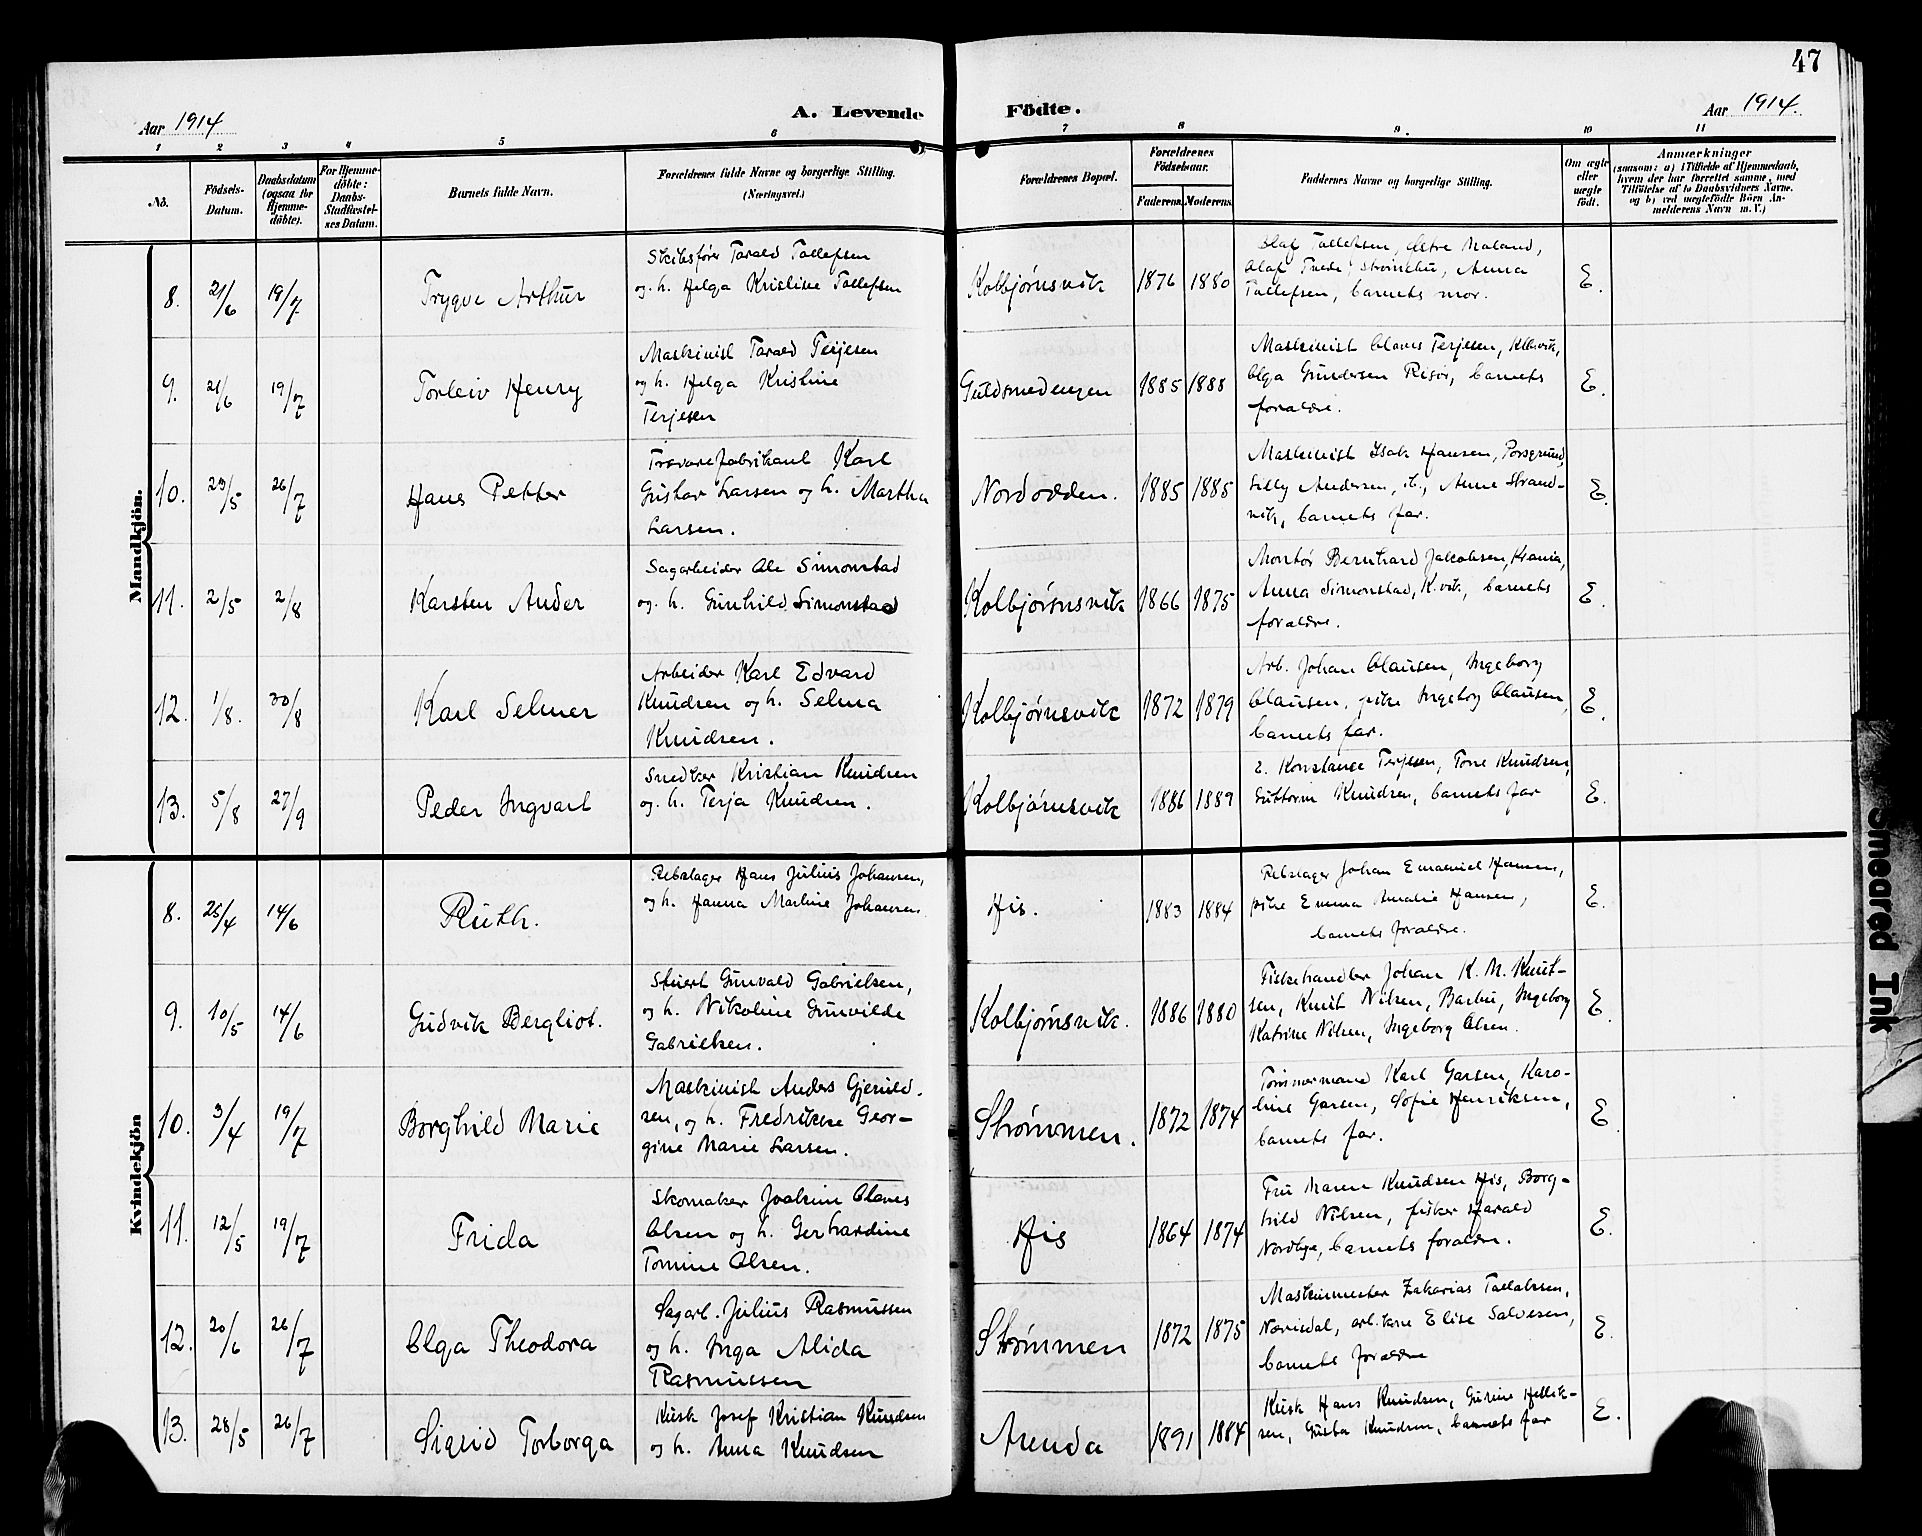 47
Aar 1914
A. Levende Födte.
Aar 1914.
1 2 3 4 5 6 7 8 9. 10 11
No.
Födsels-
Datum.
Daabsdatum
(ogsaa for
Hjemme-
döbte).
For Hjemme-
döbte:
Daabs-
Stadfæstel-
ses Datum.
Barnets fulde Navn.
Forældrenes fulde Navne og borgerlige Stilling.
(Næringsvei.)
Forældrenes Bopæl.
Forældrenes
Födselsaar.
Faderens. Moderens.
Faddernes Navne og borgerlige Stilling.
Om ægte
eller
uægte
född.
Anmærkninger
(saasom: a) i Tilfælde af Hjemmedaab,
hvem der har forrettet samme, med
Tilföielse af to Daabsvidners Navne.
og b) ved uægtefödte Börn An-
melderens Navn m. V.)
Mandkjön.
8. 21/6 19/7. Trygve Arthur
Skibsfører Tarald Tallefsen
og h. Helga Kristine Tallefsen
Kolbjørnsvik 1876 1880
Olaf Tallefsen, Østre Maland,
Olaf Tvede, Anna
Tallefsen, barnets mor.
E.
9. 21/6 19/7 Torleiv Henry
Maskinist Tarald Terjesen
og h. Helga Kristine
Terjesen
Guldsmedengen 1885 1888
Maskinist Olaves Terjesen, Klbvik,
Olga Gundersen Risør, barnets
forældre.
E.
10. 29/5 26/7 Hans Petter
Trævarefabrikant Karl
Gustav Larsen og h. Martha
Larsen.
Nordodden. 1885 1885
Maskinist Isak Hansen, Porsgrund,
Lilly Andersen, Anne Strand-
vik, barnets far.
E.
11. 2/5 2/8 Karsten Ander
Sagarbeider Ole Simonstad
og h. Gunhild Simonstad
Kolbjørnsvik 1866 1875
Montør Bernhard Jakobsen, Krania,
Anna Simonstad, K.vik, barnets
forældre.
E.
12. 1/8. 30/8 Karl Selmer
Arbeider Karl Edvard
Knudsen og h. Selma
Knudsen.
Kolbjørnsvik 1872 1879
Arb. Johan Clausen, Ingeborg
Clausen, pike Ingeborg Clausen,
barnets far.
E.
13. 5/8 27/9 Peder Ingvart
Snedker Kristian Knudsen
og h. Terja Knudsen.
Kolbjørnsvik 1886 1889
E. Konstanse Terjesen, Tone Knudsen,
Guttorm Knudsen, barnets far
E.
Kvindekjön
8. 25/4 14/6 Ruth.
Rebslager Hans Julius Johansen,
og h. Hanna Martine Johansen
His. 1883 1884
Rebslager Johan Emanuel Hansen,
pike Emma Amalie Hansen,
barnets forældre.
E.
9. 10/5 14/6 Gudvik Bergliot.
Stuert Gunvald Gabrielsen,
og h. Nikoline Gunvilde
Gabrielsen.
Kolbjørnsvik. 1886 1880
Fiskehandler Johan K. M. Knut-
sen, Knut Nilsen, Barbu, Ingeborg
Katrine Nilsen, Ingeborg Olsen.
E.
10. 3/4 19/7 Borghild Marie
Maskinist Anders Gjeruld-
sen, og h. Fredrikke Geor-
gine Marie Larsen.
Strømmen. 1872 1874
Tømmermand Karl Garsen, Karo-
line Garsen, Sofie Henriksen,
barnets far.
E.
11. 12/5 19/7 Frida
Skomaker Joakim Olaves
Olsen og h. Gerhardine
Tomine Olsen.
His 1864 1874
Fru Maren Knudsen His, Borg-
hild Nilsen, fisker Harald
Nordbye, barnets forældre.
E.
12. 20/6 26/7 Olga Theodora
Sagarb. Julius Rasmussen
og h. Inga Alida
Rasmussen
Strømmen 1872 1875
Maskinmester Zakarias Tallaksen,
Næsisdal, arb.kone Elise Salvesen,
barnets forældre
E.
13. 28/5 26/7 Sigrid Torborga
Kusk Josef Kristian Knudsen
og h. Anna Knudsen
Arenda 1891 1884
Kusk Hans Knudsen, Gurine Hellik-
sen, Gusta Knudsen, barnets far
E.
Smeared Ink